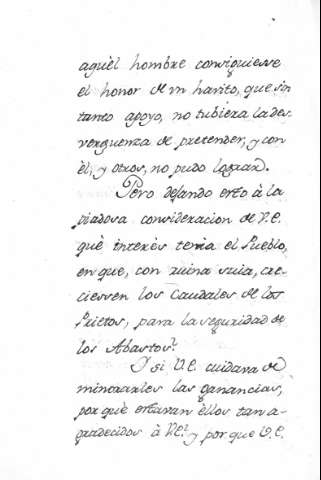 aquèl hombre consiguiesse
el honor de vn havito, que sin
tanto apoyo, no tubiera la des-
verguenza de pretender, y con
èl, y otros, no pudo lograr.
Pero dejando esto à la
piadosa consideracion de V.E.
què interès tenia el Pueblo,
en que, con ruina suia, cre-
ciessen los Caudales de los
Prietos, para la seguridad de
los Abastos?
I si V.E. cuidava de
minorarles las ganancias,
por què estavan èllos tan a-
gradecidos à V.E? y por que V.E.